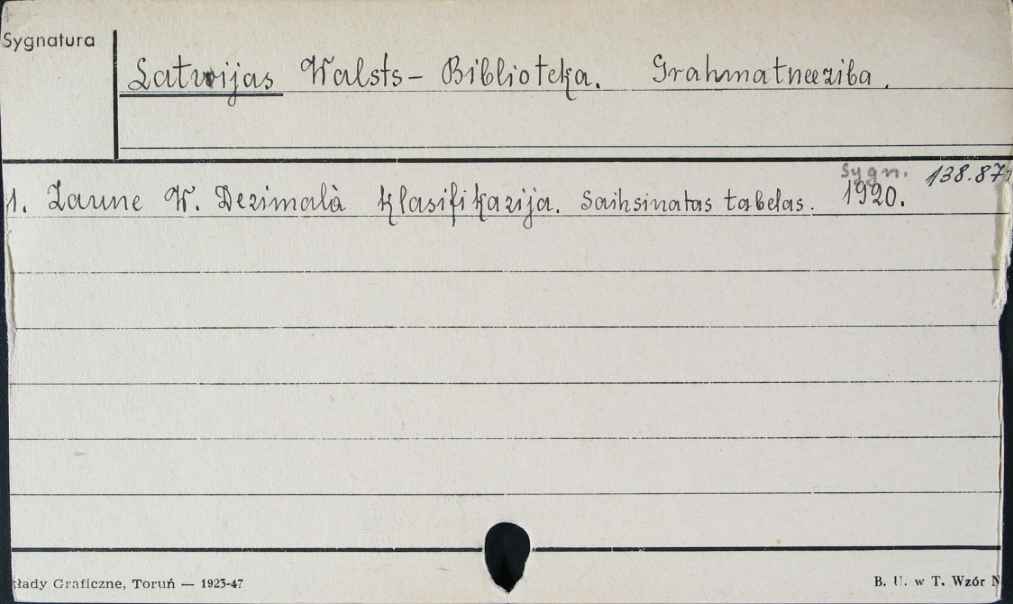 Sygnatura
Latwijas Walsts - Biblioteka. Grahmatneeziba.
Sygn. 138.87
1. Zaune W. Dezimalà klasifikazija. Saihsinatas tabelas. 1920.
kłady Graficzne, Toruń — 1923-47
B. U. w T. Wzór N